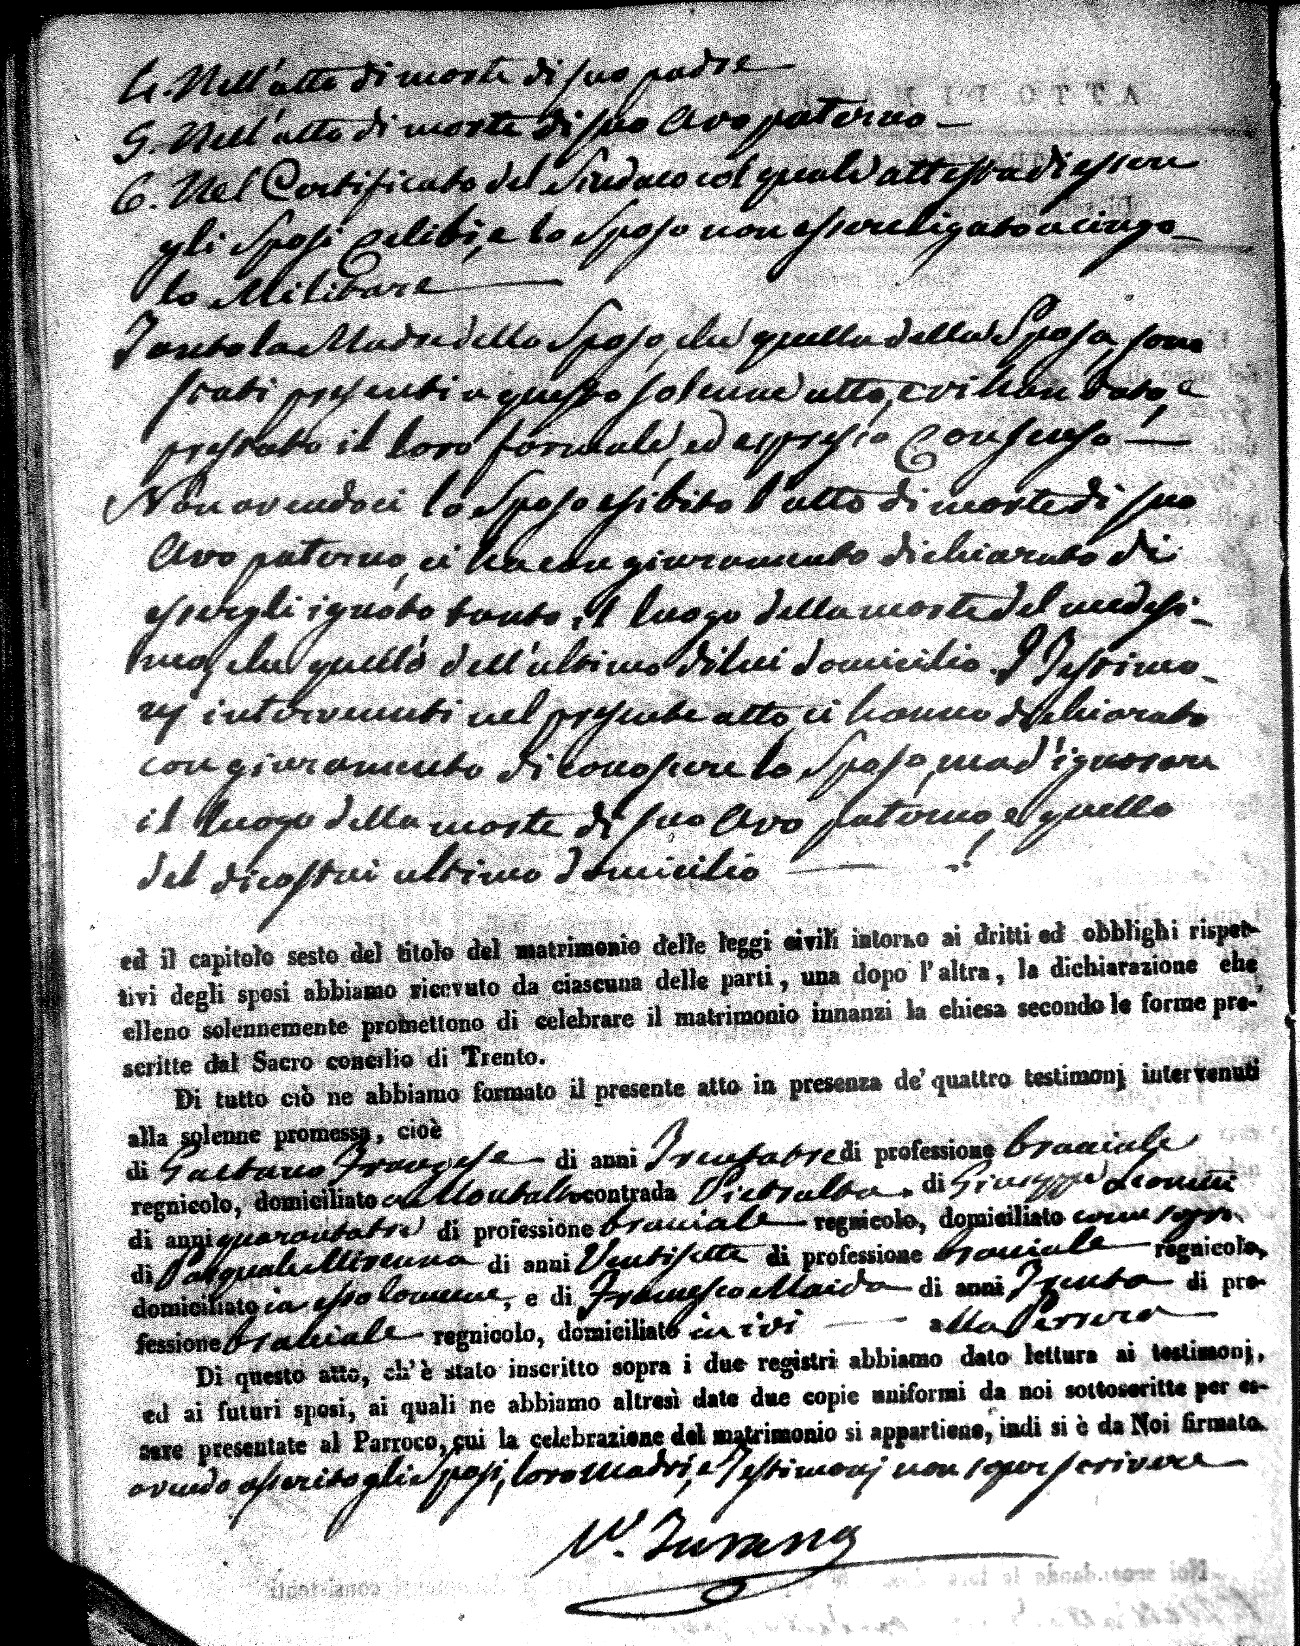 4. Nell'atto di morte di suo padre
5. Nell'atto di morte di suo Avo paterno
6. Nel Certificato del Sindaco col quale attesta di essere
gli Sposi Celibi, e lo Sposo non essere ligato a cingo-
lo Militare
Tanto la Madre dello Sposo, che quella della Sposa, sono
stati presenti a questo solenne atto, e vi han dato, e
prestato il loro formale, ed espresso Consenso
Non avendoci lo Sposo esibito l'atto di morte di suo
Avo paterno, ci ha con giuramento dichiarato di
essergli ignoto tanto il luogo della morte del medesi-
mo, che quello dell'ultimo di lui domicilio. I Testimo-
nj intervenuti nel presente atto, ci hanno dichiarato
con giuramento di conoscere lo Sposo, ma d'ignorare
il luogo della morte di suo Avo paterno, e quello
del dicostui ultimo domicilio
ed il capitolo sesto del titolo del matrimonio delle leggi civili intorno ai dritti ed obblighi rispet-
tivi degli sposi abbiamo ricevuto da ciascuna delle parti, una dopo l'altra, la dichiarazione che
elleno solennemente promettono di celebrare il matrimonio innanzi la chiesa secondo le forme pre-
scritte dal Sacro concilio di Trento.
Di tutto ciò ne abbiamo formato il presente atto in presenza de' quattro testimonj intervenuti
alla solenne promessa, cioè
di Gaetano Franzese di anni Trentatre di professione bracciale
regnicolo, domiciliato in Montalto contrada Pietralta, di Giuseppe
di anni quarantatre di professione bracciale regnicolo, domiciliato come sopra
di Pasquale Mirenna di anni Ventisette di professione bracciale regnicolo,
domiciliato in esso Comune, e di Francesco Maida di anni Trenta di pro-
fessione bracciale regnicolo, domiciliato in ivi alla
Di questo atto, ch'è stato inscritto sopra i due registri abbiamo dato lettura ai testimonj,
ed ai futuri sposi, ai quali ne abbiamo altresì date due copie uniformi da noi sottoscritte per es-
sere presentate al Parroco, cui la celebrazione del matrimonio si appartiene, indi si è da Noi firmato.
avendo asserito gli Sposi, loro Madri, e Testimonj non saper scrivere